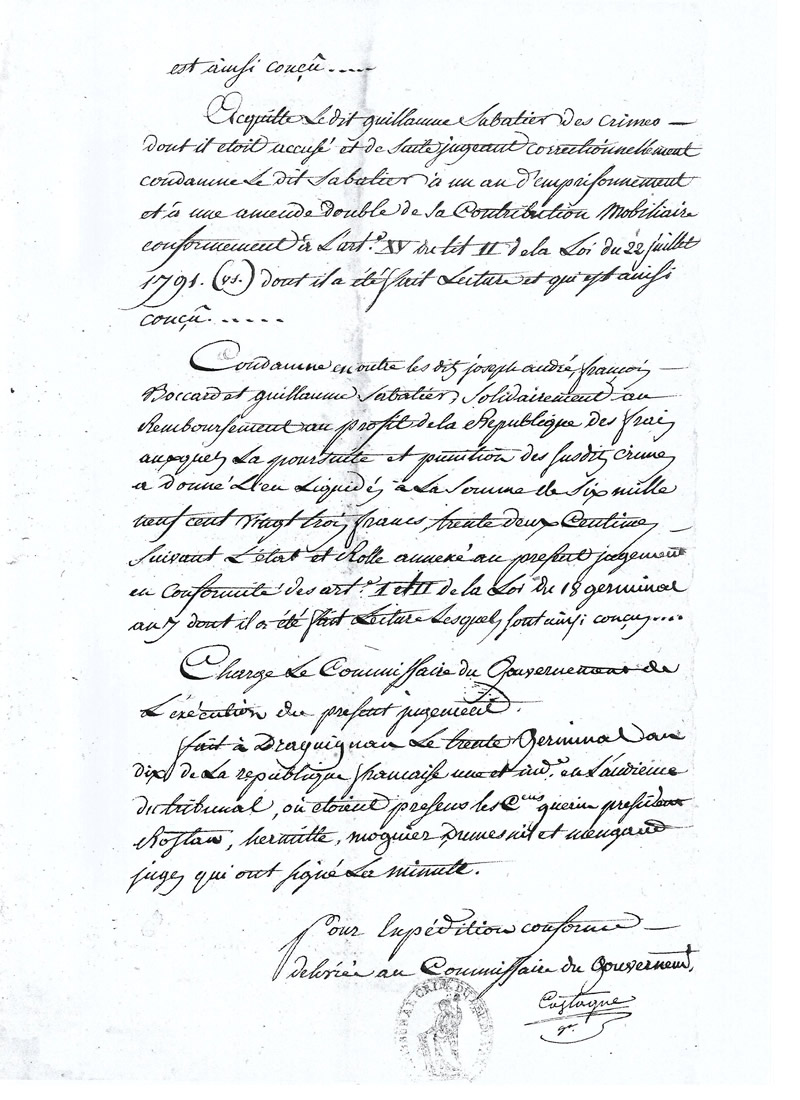 est ainsi conçû.....
Acquitte Le dit guillaume Sabatier des crimes —
dont il etoit accusé et de suite jugeant correctionnellement
condamne Le dit Sabatier à un an d'emprisonnement
et à une amende double de la Contribution Mobiliaire
conformement à L'art.e XV du tit II de la Loi du 22 juillet
1791. (vs.) dont il a été fait Lecture et qui est ainsi
conçû. .....
Condamne en outre les dits joseph andré françois —
Boccard et guillaume Sabatier, solidairement au
Remboursement au profit de la République des frais
auxquels La poursuite et punition des susdits crimes
a donné Lieu Liquidés à La Somme de Six mille
neuf cent vingt trois francs, trente deux Centimes —
suivant L'état et Rolle annexé au present jugement
en conformité des art.s I et II de la Loi du 18 germinal
an 7 dont il a été fait Lecture Lesquels sont ainsi conçus....
Charge Le Commissaire du Gouvernement de
L'exécution du present jugement.
fait à Draguignan Le trente Germinal an
dix de La republique francaise une et ind.e en L'audience
du tribunal, où etoient presens les C.ens guerin president
Roslan, hermitte, moguier Dumesnil et mengaud
juges qui ont signé La minute.
Pour Expédition conforme —
delivrée au Commissaire du Gouvernemt.
Castagne
gr.